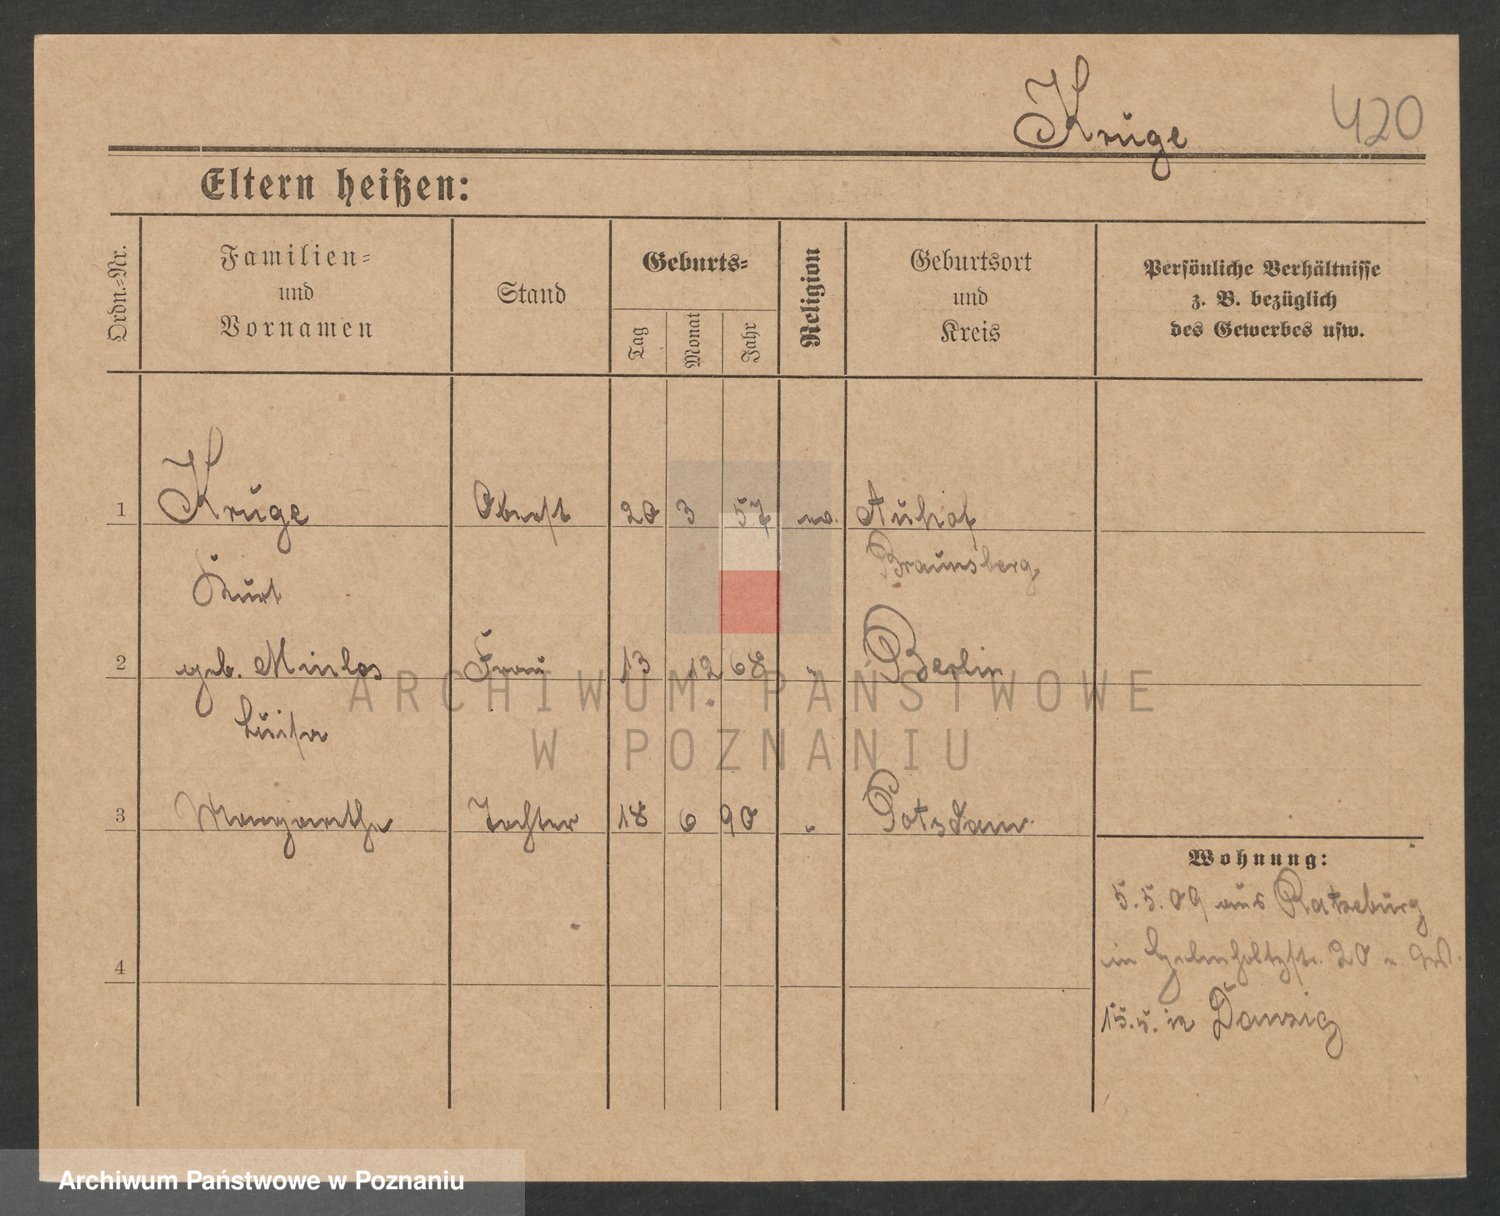 Kruge 420
Eltern heißen:
Ordn.-Nr.
Familien-
und
Vornamen
Stand
Geburts-
Tag
Monat
Jahr
Religion
Geburtsort
und
Kreis
Persönliche Verhältnisse
z. B. bezüglich
des Gewerbes usw.
1 Kruge Oberst 20 3 57 ev. Auhof
Kurt Braunsberg
2 geb. Minlos Frau 13 12 68 " Berlin
Luise
3 Margarethe Tochter 18 6 90 " Potsdam
Wohnung:
5.5.09 aus Ratzeburg
4
in Helmholtzstr. 20
15.5. in Danzig
ARCHIWUM PAŃSTWOWE
W POZNANIU
Archiwum Państwowe w Poznaniu